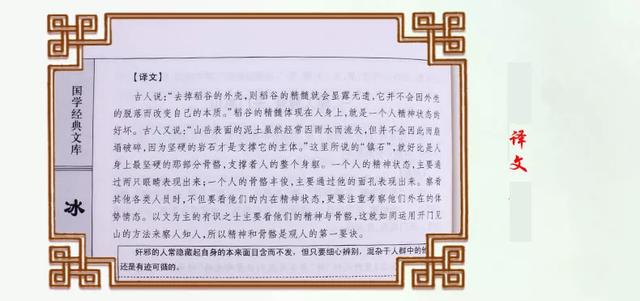 【译文】
古人说：“去掉稻谷的外壳，则稻谷的精髓就会显露无遗，它并不会因外壳
的脱落而改变自己的本质。”稻谷的精髓体现在人身上，就是一个人精神状态的
好坏。古人又说：“山岳表面的泥土虽然经常因雨水而流失，但并不会因此而崩
塌破碎，因为坚硬的岩石才是支撑它的主体。”这里所说的“镇石”，就好比是人
身上最坚硬的那部分骨骼，支撑着人的整个身躯。一个人的精神状态，主要通
过两只眼睛表现出来；一个人的骨骼丰俊，主要通过他的面孔表现出来。察看
其他各类人员时，不但要看他们的内在精神状态，更要注重考察他们外在的体
势情态。以文为主的有识之士主要看他们的精神与骨骼，这就如同运用开门见
山的方法来察人知人，所以精神和骨骼是观人的第一要诀。
奸邪的人常隐藏起自身的本来面目含而不发，但只要细心辨别，混杂于人群中的
还是有迹可循的。
国学经典文库
冰
译文